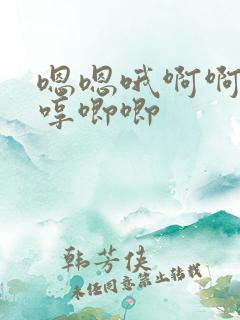 嗯嗯哦啊啊
哼唧唧
韩芳侠
未经同意禁止转载